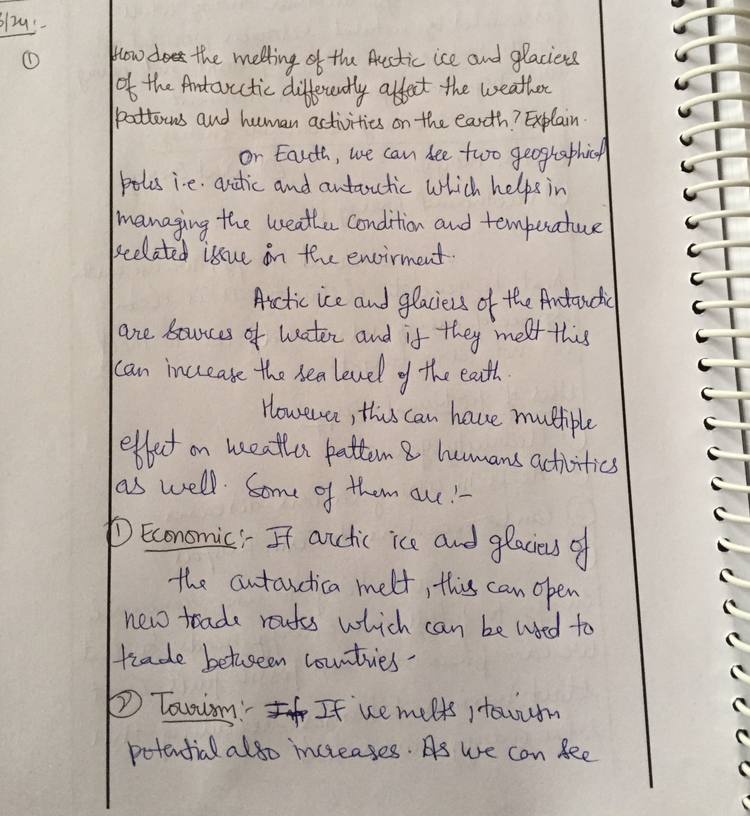 3/24:-
①
How does the melting of the Arctic ice and glaciers
of the Antarctic differently affect the weather
patterns and human activities on the earth? Explain.
On Earth, we can see two geographical
poles i.e. arctic and antarctic which helps in
managing the weather condition and temperature
related issue in the envirment.
Arctic ice and glaciers of the Antarctic
are sources of water and if they melt this
can increase the sea level of the earth.
However, this can have multiple
effect on weather pattern & humans activities
as well. Some of them are :-
① Economic :- If arctic ice and glaciers of
the antarctica melt, this can open
new trade routes which can be used to
trade between countries -
② Tourism :- If ice melts, tourism
potential also increases. As we can see